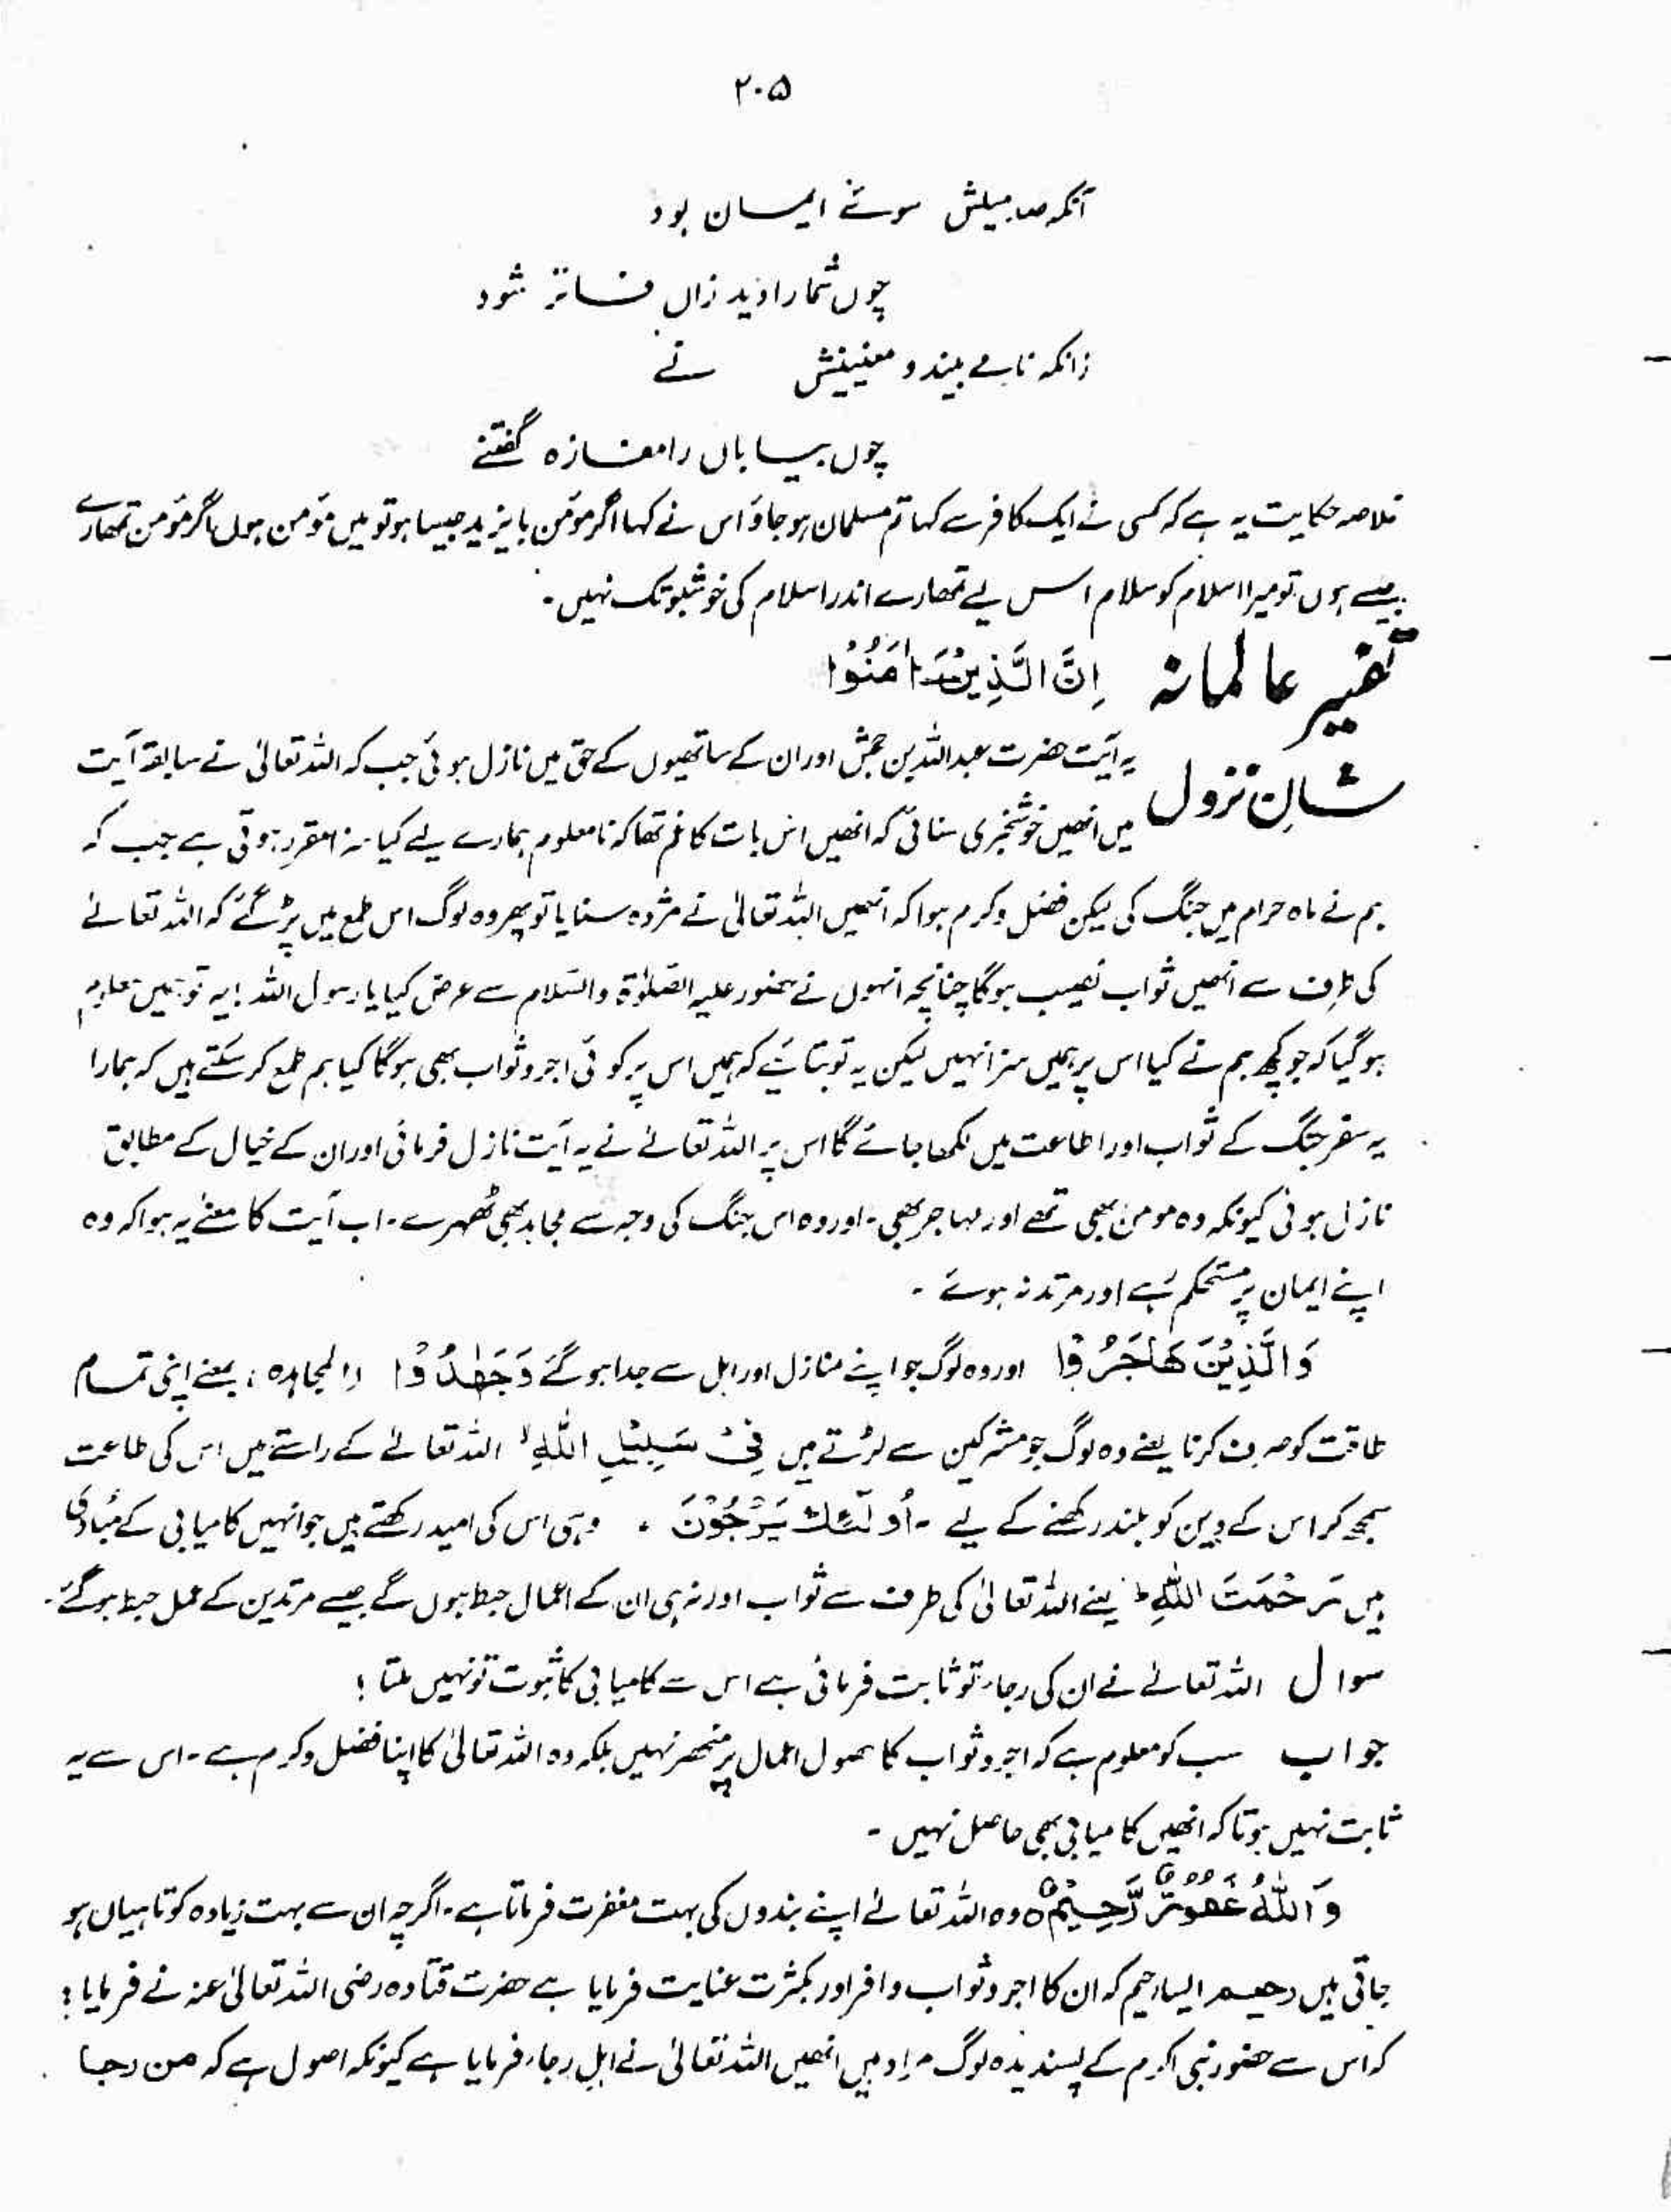 ۲۰۵
آنکہ صد میلش سوئے ایمان بود
چوں شما را دید زاں فاتر شود
زانکہ نامے بیند و معنیش نے
چوں بیاباں را مفازہ گفتنے
خلاصہ حکایت یہ ہے کہ کسی نے ایک کافر سے کہا تم مسلمان ہو جاؤ اس نے کہا اگر مؤمن بایزید جیسا ہو تو میں مؤمن ہوں اگر مؤمن تمھارے
جیسے ہوں تو میرا اسلام کو سلام اس لیے تمھارے اندر اسلام کی خوشبو تک نہیں۔
تفسیر عالمانہ اِنَّ الَّذِیْنَ اٰمَنُوْا
شانِ نزول یہ آیت حضرت عبداللہ بن جحش اور ان کے ساتھیوں کے حق میں نازل ہوئی جب کہ اللہ تعالیٰ نے سابقہ آیت
میں انھیں خوشخبری سنائی کہ انھیں اس بات کا غم تھا کہ نامعلوم ہمارے لیے کیا سزا مقرر ہوتی ہے جب کہ
ہم نے ماہ حرام میں جنگ کی لیکن فضل و کرم ہوا کہ انھیں اللہ تعالیٰ نے مژدہ سنایا تو پھر وہ لوگ اس طمع میں پڑ گئے کہ اللہ تعالےٰ
کی طرف سے انھیں ثواب نصیب ہوگا چنانچہ انہوں نے حضور علیہ الصّلوٰۃ والسّلام سے عرض کیا یا رسول اللہ! یہ تو ہمیں معلوم
ہو گیا کہ جو کچھ ہم نے کیا اس پر ہمیں سزا نہیں لیکن یہ تو بتائیے کہ ہمیں اس پر کوئی اجر و ثواب بھی ہوگا کیا ہم طمع کر سکتے ہیں کہ ہمارا
یہ سفر جنگ کے ثواب اور اطاعت میں لکھا جائے گا اس پر اللہ تعالےٰ نے یہ آیت نازل فرمائی اور ان کے خیال کے مطابق
نازل ہوئی کیونکہ وہ مومن بھی تھے اور مہاجر بھی۔ اور وہ اس جنگ کی وجہ سے مجاہد بھی ٹھہرے۔ اب آیت کا معنےٰ یہ ہوا کہ وہ
اپنے ایمان پر مستحکم رہے اور مرتد نہ ہوئے۔
وَالَّذِیْنَ ھَاجَرُوْا اور وہ لوگ جو اپنے منازل اور اہل سے جدا ہو گئے وَجٰھَدُوْا (المجاہدہ؛ بمعنے اپنی تمام
طاقت کو صرف کرنا یعنے وہ لوگ جو مشرکین سے لڑتے ہیں فِیْ سَبِیْلِ اللّٰہِ ۙ اللہ تعالےٰ کے راستے میں اس کی طاعت
سمجھ کر اس کے دین کو بلند رکھنے کے لیے ۔ اُولٰٓئِکَ یَرْجُوْنَ ۔ وہی اس کی امید رکھتے ہیں جو انہیں کامیابی کے مُبادی
ہیں رَحْمَتَ اللّٰہِ ؕ یعنے اللہ تعالیٰ کی طرف سے ثواب اور نہ ہی ان کے اعمال حبط ہوں گے جیسے مرتدین کے عمل حبط ہو گئے۔
سوال اللہ تعالےٰ نے ان کی رجاء تو ثابت فرمائی ہے اس سے کامیابی کا ثبوت تو نہیں ملتا؛
جواب سب کو معلوم ہے کہ اجر و ثواب کا حصول اعمال پر منحصر نہیں بلکہ وہ اللہ تعالیٰ کا اپنا فضل و کرم ہے۔ اس سے یہ
ثابت نہیں ہوتا کہ انھیں کامیابی بھی حاصل نہیں۔
وَاللّٰہُ غَفُوْرٌ رَّحِیْمٌ ہ وہ اللہ تعالےٰ اپنے بندوں کی بہت مغفرت فرماتا ہے۔ اگرچہ ان سے بہت زیادہ کوتاہیاں ہو
جاتی ہیں رحیم ایسا رحیم کہ ان کا اجر و ثواب وافر اور بکثرت عنایت فرمایا ہے حضرت قتادہ رضی اللہ تعالیٰ عنہ نے فرمایا؛
کہ اس سے حضور نبی اکرم کے پسندیدہ لوگ مراد ہیں انھیں اللہ تعالیٰ نے اہل رجاء فرمایا ہے کیونکہ اصول ہے کہ من رجا